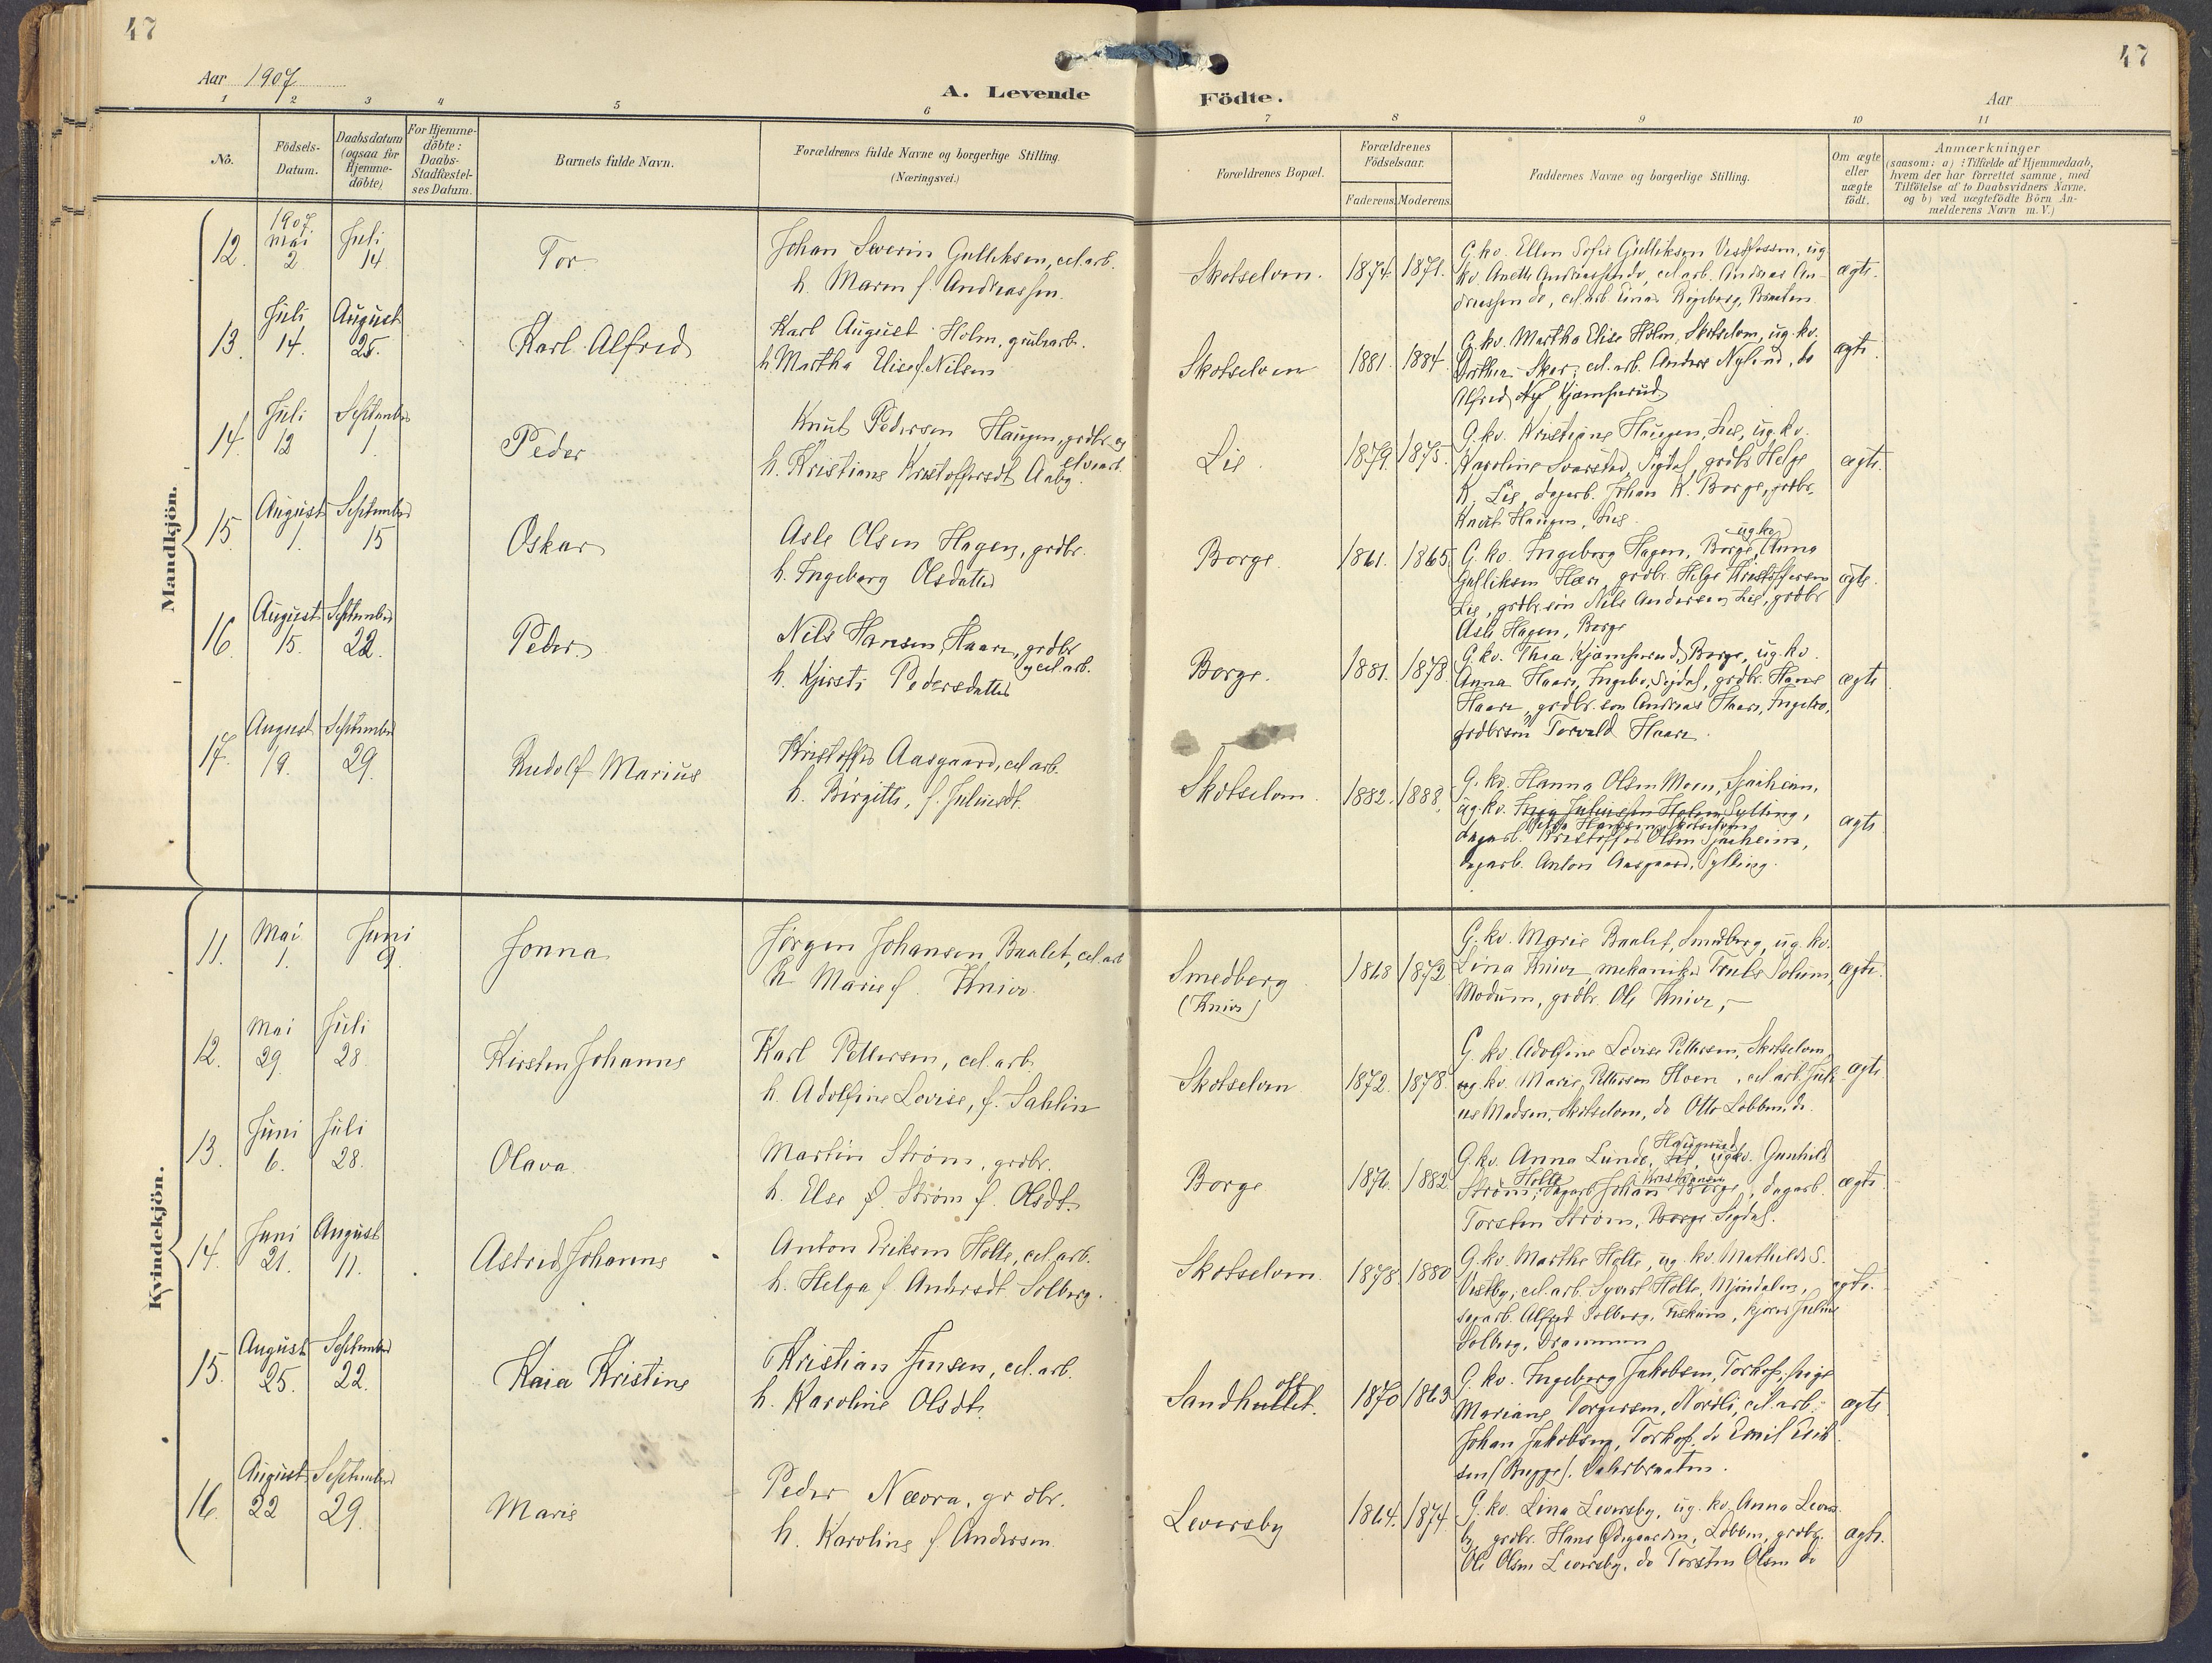 47
47
Aar 1907
A. Levende Födte.
Aar
1 2 3 4 5 6 7 8 9 10 11
No.
Födsels-Datum.
Daabsdatum (ogsaa for Hjemme-döbte)
For Hjemme-döbte: Daabs-Stadfæstel-ses Datum.
Barnets fulde Navn.
Forældrenes fulde Navne og borgerlige Stilling.
(Næringsvei.)
Forældrenes Bopæl.
Forældrenes Födselsaar.
Faderens. Moderens.
Faddernes Navne og borgerlige Stilling.
Om ægte eller uægte födt.
Anmærkninger
(saasom: a) i Tilfælde af Hjemmedaab,
hvem der har forrettet samme, med
Tilföielse af to Daabsvidners Navne.
og b) ved uægtefödte Börn An-
melderens Navn m.V.)
Mandkjön.
12. 1907. Mai 2 Juli 14 Tor
Johan Severin Gulliksen, cel.arb.
h. Maren f. Andreassen.
Skotselven. 1874. 1871.
G. kv. Ellen Sofie Gulliksen Vestfossen, ug.
kv. Anette Andreassen do, cel.arb. Andreas An-
dreassen do, cel.arb. Einar Rygeberg, Braaten
ægte.
13. Juli 14. August 25. Karl Alfred
Karl August Holm, grubearb.
h. Martha Elise f. Nilsen
Skotselven 1881. 1884.
G. kv. Martha Elise Holm, Skotselven, ug. kv.
Dorthea Skar, cel.arb. Anders Nylund, do
Alfred Kjemsrud
ægte.
14. Juli 12 September 1. Peder
Knut Pedersen Haugen, grdbr. og elvearb.
h. Kristiane Kristoffersdt. Aaby.
Lie. 1879. 1875.
G. kv. Kristiane Haugen, Lie, ug. kv.
Karoline Svarstad, Sigdal, grdbr. Helge
K. Lie, dagarb. Johan K. Borge, grdbr.
Knut Haugen, Lie.
ægte.
15. August 1. September 15 Oskar
Asle Olsen Hagen, grdbr.
h. Ingeborg Olsdatter
Borge. 1861. 1865.
G. kv. Ingeborg Hagen, Borge, ug. kv. Anna
Gulliksen Horn, grdbr. Helge Kristoffersen
Lie, grdbr.søn Nils Andersen Lie, grdbr
Asle Hagen, Borge
ægte.
16. August 15. September 22. Peder
Nils Hansen Haare, grdbr og cel.arb.
h. Kjersti Pedersdatter
Borge. 1881. 1878.
G. kv. Thea Kjemsrud, Borge, ug. kv.
Anna Haare, Ingebo, Sigdal, grdbr. Hans
Haare, grdbr.søn Andreas Haare, Ingebo,
grdbrsøn Torvald Haare.
ægte
17. August 19. September 29. Rudolf Marius
Kristoffer Aasgaard, cel.arb.
h. Birgitte, f. Juliusdt.
Skotselven. 1882. 1888.
G. kv. Hanna Olsen Moen, Sjaaheim,
ug. kv. Inga Juliussen Holmen Sylling,
Hansen, Skotselven,
dagarb. Kristoffer Olsen Sjaaheim,
dagarb. Anton Aasgaard, Sylling.
ægte
Kvindekjön.
11. Mai 1. Juni 9. Jonna
Jørgen Johansen Baalet, cel.arb
h. Marie f. Knive
Smedberg (Knive) 1868 1872
G. kv. Marie Baalet, Smedberg, ug. kv.
Lina Knive, mekaniker Truls Solum,
Modum, grdbr. Ole Knive,
ægte.
12. Mai 29. Juli 28 Kirsten Johanne
Karl Pettersen, cel.arb.
h. Adolfine Lovise, f. Sahlin
Skotselven 1872. 1878.
G. kv. Adolfine Lovise Pettersen, Skotselven,
ug. kv. Marie Pettersen Hoen, cel.arb. Juli-
us Madsen, Skotselven, do Otto Lobben, do.
ægte
13. Juni 6. Juli 28. Olava.
Martin Strøm, grdbr.
h. Else Strøm f. Olsdt.
Borge 1876. 1882
G. kv. Anna Lunde, Haugerud, ug. kv. Gunhild
Strøm, Holte, dagarb. Johan Kristiansen Borge, dagarb.
Torsten Strøm, Borge Sigdal.
ægte
14. Juni 21. August 11. Astrid Johanne
Anton Eriksen Holte, cel.arb.
h. Helga f. Andersdt. Solberg.
Skotselven. 1878. 1880
G. kv. Marthe Holte, ug. kv. Mathilde S.
Vestby, cel.arb. Syvert Holte, Mjøndalen,
dagarb. Alfred Solberg, Fiskum, Julius
Solberg, Drammen
ægte.
15. August 25. September 22. Kaia Kristine
Kristian Jensen, cel.arb.
h. Karoline Olsdt.
Sandhullet. 1870 1863
G. kv. Ingeborg Jakobsen, Torkop, pige
Mariane Torgersen, Nordli, cel.arb.
Johan Jakobsen, Torkop, do Emil Erik-
sen (Bugge), Dahlerbraaten.
ægte
16. August 22 September 29. Marie
Peder Nævra, grdbr.
h. Karoline f. Andersen.
Leversby 1864. 1874
G. kv. Lina Leversby, ug. kv. Anna Levers-
by, grdbr. Hans Ødegaarden, Lobben, grdbr.
Ole Olsen Leversby, do Torsten Olsen do
ægte.